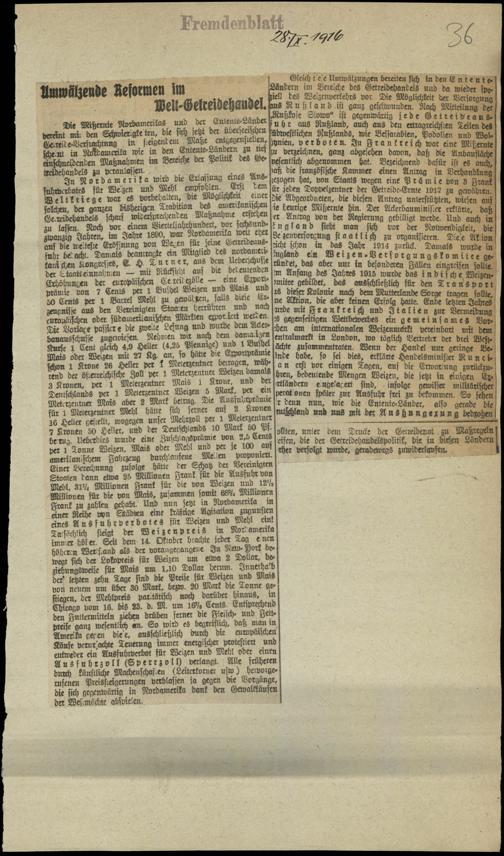 Fremdenblatt
28/X. 1916
36
Umwälzende Reformen im
Welt-Getreidehandel.
Die Mißernte Nordamerikas und der Entente-Länder
vereint mit den Schwierigkeiten, die sich jetzt der überseeischen
Getreide-Verfrachtung in steigendem Maße entgegenstellen,
scheint in Nordamerika wie in den Entente-Ländern zu tief
einschneidenden Maßnahmen im Bereiche der Politik des Ge-
treidehandels zu veranlassen.
In Nordamerika wird die Erlassung eines Aus-
fuhrverbotes für Weizen und Mehl empfohlen. Erst dem
Weltkriege war es vorbehalten, die Möglichkeit einer
solchen, der ganzen bisherigen Tradition des amerikanischen
Getreidehandels scharf widersprechenden Maßnahme erstehen
zu lassen. Noch vor einem Vierteljahrhundert, vor sechsund-
zwanzig Jahren, im Jahre 1890, war Nordamerika weit eher
auf die weiteste Eröffnung von Wegen für seine Getreideaus-
fuhr bedacht. Damals beantragte ein Mitglied des nordameri-
kanischen Kongresses, E. H. Turner, aus dem Ueberschusse
der Staatseinnahmen — mit Rücksicht auf die bedeutenden
Erhöhungen der europäischen Getreidezölle — eine Export-
prämie von 7 Cents per 1 Bushel Weizen und Mais und
30 Cents per 1 Barrel Mehl zu gewähren, falls diese Er-
zeugnisse aus den Vereinigten Staaten herrühren und nach
europäischen oder südamerikanischen Märkten exportiert werden.
Die Vorlage passierte die zweite Lesung und wurde dem Acker-
bauausschusse zugewiesen. Nehmen wir nach dem damaligen
Kurse 1 Cent gleich 4,9 Heller (4,25 Pfennige) und 1 Bushel
Mais oder Weizen mit 27 Kg. an, so hätte die Exportprämie
schon 1 Krone 26 Heller per 1 Meterzentner betragen, wäh-
rend der österreichische Zoll per 1 Meterzentner Weizen damals
3 Kronen, per 1 Meterzentner Mais 1 Krone, und der
Deutschlands per 1 Meterzentner Weizen 5 Mark, per ein
Meterzentner Mais aber 2 Mark betrug. Die Ausfuhrprämie
für 1 Meterzentner Mehl hätte sich ferner auf 2 Kronen
16 Heller gestellt, wogegen unser Mehlzoll per 1 Meterzentner
7 Kronen 50 Heller, und der Deutschlands 10 Mark 50 Pf.
betrug. Ueberdies wurde eine Zuschlagsprämie von 2,5 Cents
per 1 Tonne Weizen, Mais oder Mehl und per je 100 auf
amerikanischem Fahrzeug durchfahrenen Meilen proponiert.
Einer Berechnung zufolge hätte der Schatz der Vereinigten
Staaten dann etwa 25 Millionen Frank für die Ausfuhr von
Mehl, 31¼ Millionen Frank für die von Weizen und 12½
Millionen für die von Mais, zusammen somit 68¾ Millionen
Frank zu zahlen gehabt. Und nun jetzt in Nordamerika in
einer Reihe von Städten eine kräftige Agitation zugunsten
eines Ausfuhrverbotes für Weizen und Mehl ein!
Tatsächlich steigt der Weizenpreis in Nordamerika
immer höher. Seit dem 14. Oktober brachte jeder Tag einen
höheren Wertstand als der vorangegangene. In New-York be-
wegt sich der Lokopreis für Weizen um etwa 2 Dollar, be-
ziehungsweise für Mais um 1,10 Dollar herum. Innerhalb
der letzten zehn Tage sind die Preise für Weizen und Mais
von neuem um über 30 Mark, bezw. 20 Mark die Tonne ge-
stiegen, der Mehlpreis paritätisch noch darüber hinaus, in
Chicago vom 16. bis 23. d. M. um 16⅝ Cents. Entsprechend
den Futtermitteln ziehen drüben ferner die Fleisch- und Fett-
preise ganz wesentlich an. So wird es begreiflich, daß man in
Amerika gegen diese, ausschließlich durch die europäischen
Käufe verursachte Teuerung immer energischer protestiert und
entweder ein Ausfuhrverbot für Weizen und Mehl oder einen
Ausfuhrzoll (Sperrzoll) verlangt. Alle früheren
durch künstliche Machenschaften (Leiterkorner usw.) hervorge-
rufenen Preissteigerungen verblassen ja gegen die Vorgänge,
die sich gegenwärtig in Nordamerika dank den Gewaltkäufen
der Westmächte abspielen.
Gleichtiefe Umwälzungen bereiten sich in den Entente-
Ländern im Bereiche des Getreidehandels und da wieder spe-
ziell des Weizenverkehrs vor. Die Möglichkeit der Versorgung
aus Rußland ist ganz geschwunden. Nach Mitteilung des
„Rußkoje Slowo" ist gegenwärtig jede Getreideaus-
fuhr aus Rußland, auch aus den ertragreichsten Teilen des
südwestlichen Rußlands, wie Bessarabien, Podolien und Wol-
hynien, verboten. In Frankreich war eine Mißernte
zu verzeichnen, ganz abgesehen davon, daß die Anbaufläche
wesentlich abgenommen hat. Bezeichnend dafür ist es auch,
daß die französische Kammer einen Antrag in Verhandlung
gezogen hat, von Staats wegen eine Prämie von 3 Frank
für jeden Doppelzentner der Getreide-Ernte 1917 zu gewähren.
Die Abgeordneten, die diesen Antrag unterstützten, wiesen auf
die heurige Mißernte hin. Der Ackerbauminister erklärte, daß
der Antrag von der Regierung gebilligt werde. Und auch in
England sieht man sich vor der Notwendigkeit, die
Weizenversorgung staatlich zu organisieren. Diese Aktion
reicht schon in das Jahr 1914 zurück. Damals wurde in
England ein Weizen-Versorgungskomitee ge-
gründet, das aber nur in besonderen Fällen eingreifen sollte.
Am Anfang des Jahres 1915 wurde das indische Weizen-
komitee gebildet, das ausschließlich für den Transport
aus dieser Kolonie nach dem Mutterlande Sorge tragen sollte,
eine Aktion, die aber keinen Erfolg hatte. Ende letzten Jahres
wurde mit Frankreich und Italien zur Vermeidung
des gegenseitigen Wettbewerbes ein gemeinsames Vor-
gehen am internationalen Weizenmarkt vereinbart mit dem
Zentralmarkt in London, wo täglich Vertreter der drei West-
mächte zusammentraten. Wenn der Handel nur geringe Be-
stände habe, so sei dies, erklärte Handelsminister Runci-
man erst vor einigen Tagen, auf die Erwartung zurückzu-
führen, bedeutende Mengen Weizen, die jetzt in einigen Ex-
portländern eingelagert sind, infolge gewisser militärischer
Operationen später zur Ausfuhr frei zu bekommen. So sehen
wir denn nun, wie die Entente-Länder, die gerade die
Deutschland und uns mit der Aushungerung bedrohen
wollten, unter dem Drucke der Getreidenot zu Maßregeln
greifen, die der Getreidehandelspolitik, die in diesen Ländern
früher verfolgt wurde, geradewegs zuwiderlaufen.